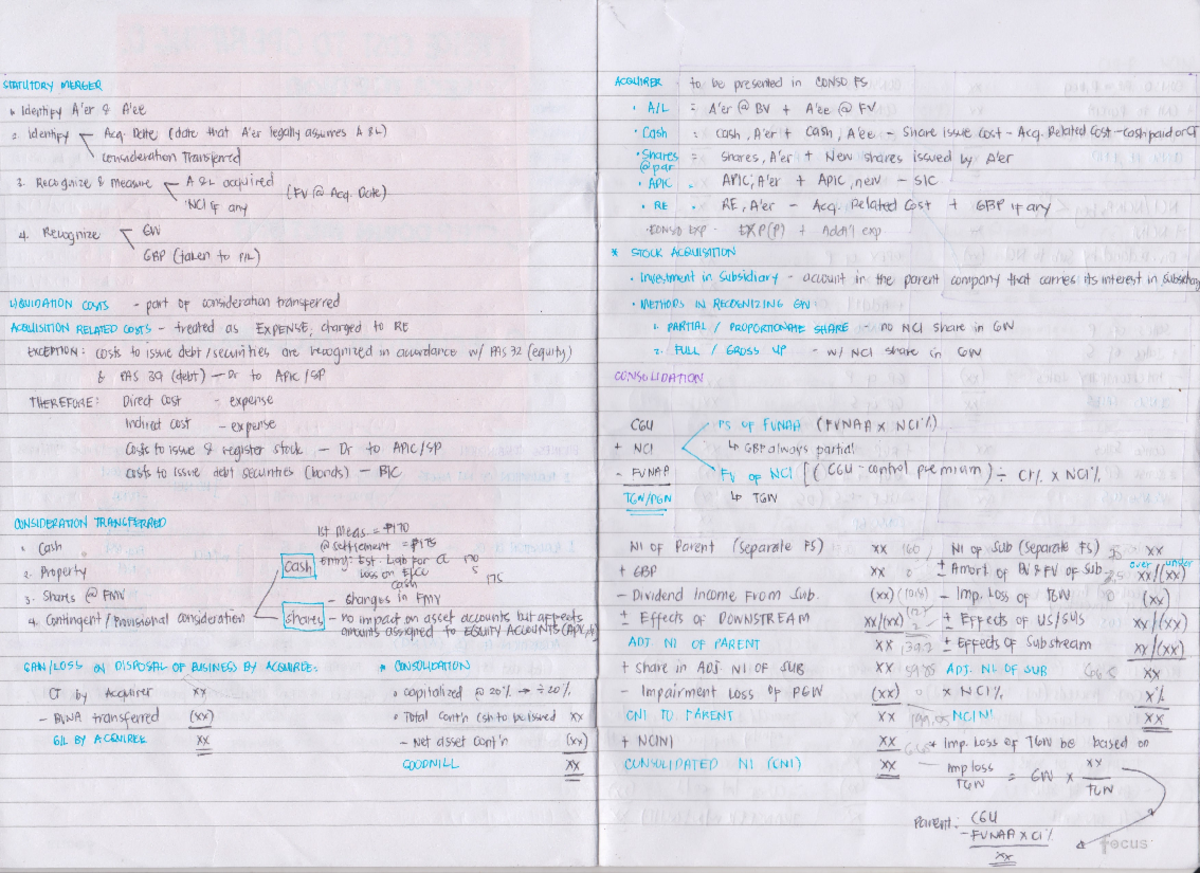 STATUTORY MERGER
1. Identify A'er & A'ee
2. Identify Acq. Date (date that A'er legally assumes A & L)
Consideration Transferred
3. Recognize & Measure A & L acquired (FV @ Acq. Date)
NCI if any
4. Recognize GW
GBP (taken to P/L)
LIQUIDATION COSTS - part of consideration transferred
ACQUISITION RELATED COSTS - treated as EXPENSE, charged to RE
EXCEPTION: costs to issue debt/securities are recognized in accordance w/ PAS 32 (equity)
& PAS 39 (debt) — Dr to APIC/SP
THEREFORE: Direct cost - expense
Indirect cost - expense
Costs to issue & register stock — Dr to APIC/SP
costs to issue debt securities (bonds) - BIC
CONSIDERATION TRANSFERRED
1. Cash
2. Property
3. Shares @ FMV
4. Contingent / Provisional consideration
1st Meas = ₱170
@ settlement = ₱175
cash
Entry: Est. Liab for CC 170
Loss on 5
cash 175
- changes in FMV
shares - no impact on asset accounts but affects
amounts assigned to EQUITY ACCOUNTS
GAIN/LOSS ON DISPOSAL OF BUSINESS BY ACQUIREE:
CT by Acquirer xx
- BVNA transferred (xx)
G/L BY ACQUIREE xx
* CONSOLIDATION
• capitalized @ 20% → ÷ 20%
• Total cont'n (sh to be issued xx
- Net asset cont'n (xx)
GOODWILL xx
ACQUIRER - to be presented in CONSO FS
• A/L = A'er @ BV + A'ee @ FV
• Cash = cash, A'er + cash, A'ee - Share issue cost - Acq. Related Cost - cash paid for CT
• Shares @ par = shares, A'er + New shares issued by A'er
• APIC = APIC, A'er + APIC, new - SIC
• RE = RE, A'er - Acq. Related Cost + GBP if any
• CONSO EXP - EXP (P) + Addn'l exp
* STOCK ACQUISITION
• Investment in Subsidiary - account in the parent company that carries its interest in subsidiary
• METHODS IN RECOGNIZING GW:
1. PARTIAL / PROPORTIONATE SHARE - no NCI share in GW
2. FULL / GROSS UP - w/ NCI share in GW
CONSOLIDATION
CGU PS OF FVNAA (FVNAA X NCI%)
+ NCI ↳ GBP always partial
- FVNAA FV OF NCI [(CGU - control premium) ÷ CI% x NCI%
TGW/PGW ↳ TGW
NI OF Parent (Separate FS) xx 160
+ GBP xx 0
- Dividend Income From Sub. (xx)
± Effects of DOWNSTREAM xx/(xx)
ADJ. NI OF PARENT xx 139.2
+ share in ADJ. NI OF SUB xx 59.85
- Impairment Loss of PGW (xx) 0
CNI TO PARENT xx 199.05
+ NCINI xx 6.65
CONSOLIDATED NI (CNI) xx
NI of Sub (Separate FS) xx
over under
± Amort of BV & FV of Sub xx/(xx)
- Imp. Loss of TGW 0 (xx)
± Effects of US/SUS xx/(xx)
± Effects of Substream xx/(xx)
ADJ. NI OF SUB 66.5 xx
x NCI% x%
NCINI xx
* Imp. Loss of TGW be based on
Imp loss TGW = GW x xx/TGW
Parent: CGU
- FVNAA x CI%
xx
focus